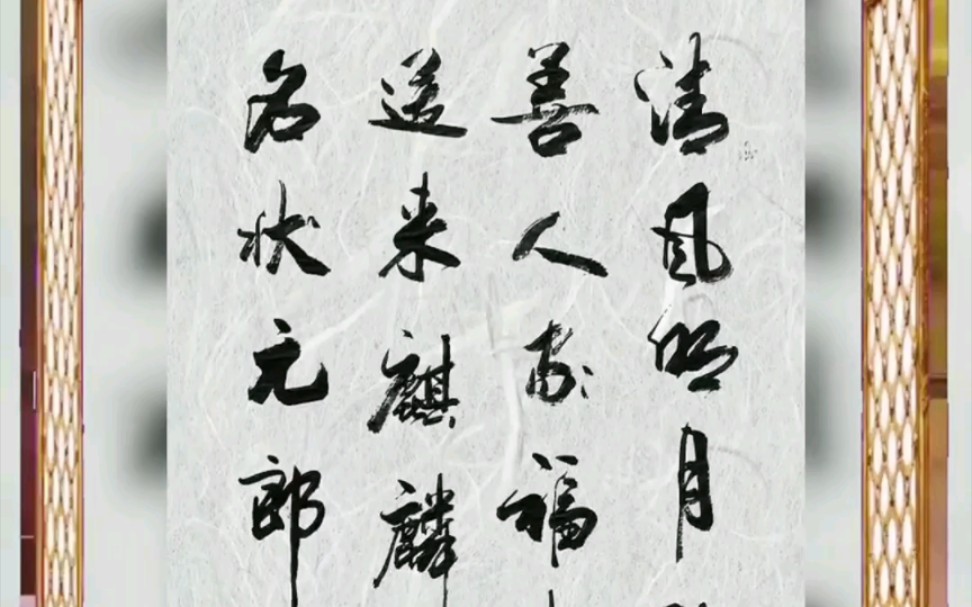 清风明月
善人家福
送来麒麟
名状元郎